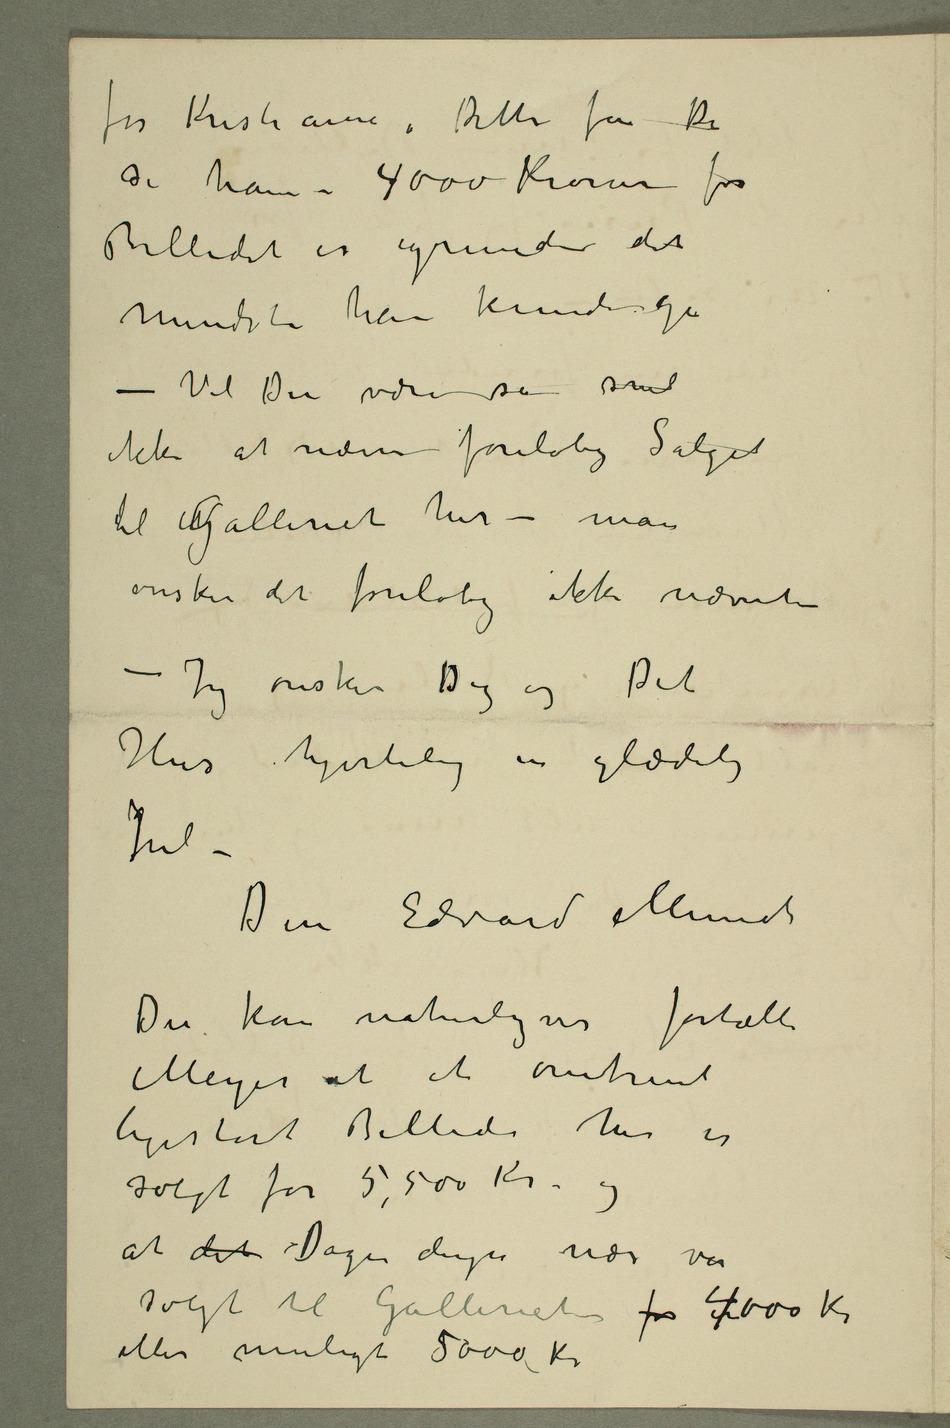 for Kristiania. Dette får De
se ham – 4000 Kroner for
Billedet er igrunden det
mindste han kunde gi
– Vil Du være så snil
ikke at nævne foreløbig Salget
til Galleriet her – man
ønsker det foreløbig ikke nævnt –
– Jeg ønsker Dig og Dit
Hus hjertelig en glædelig
Jul –
Din Edvard Munch
Du kan naturligvis fortælle
Meyer at et omtrent
ligestort Billede her er
solgt for 5,500 Kr. og
at det Dagen derpå nær var
solgt til Galleriet for 4000 Kr
eller muligt 5000 Kr